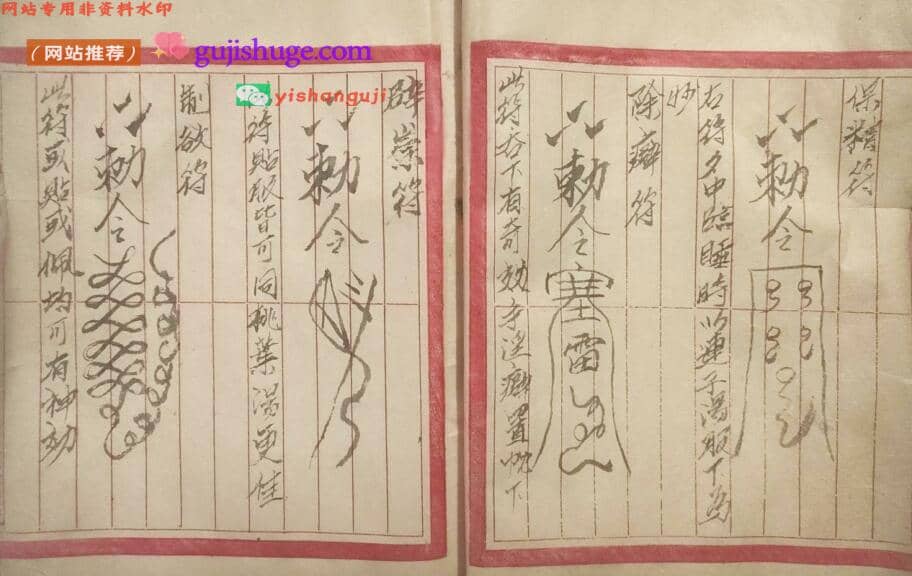 网站专用非资料水印
(网站推荐)
gujishuge.com
yishanguji
保精符
勅令
右符夕中臨睡時以蓮子湯服下為
妙
除癖符
勅令
塞雷
此符吞下有奇効手淫癖置枕下
辟祟符
勅令
符貼服皆可同桃葉湯更佳
制欲符
勅令
此符或貼或佩均可有神効